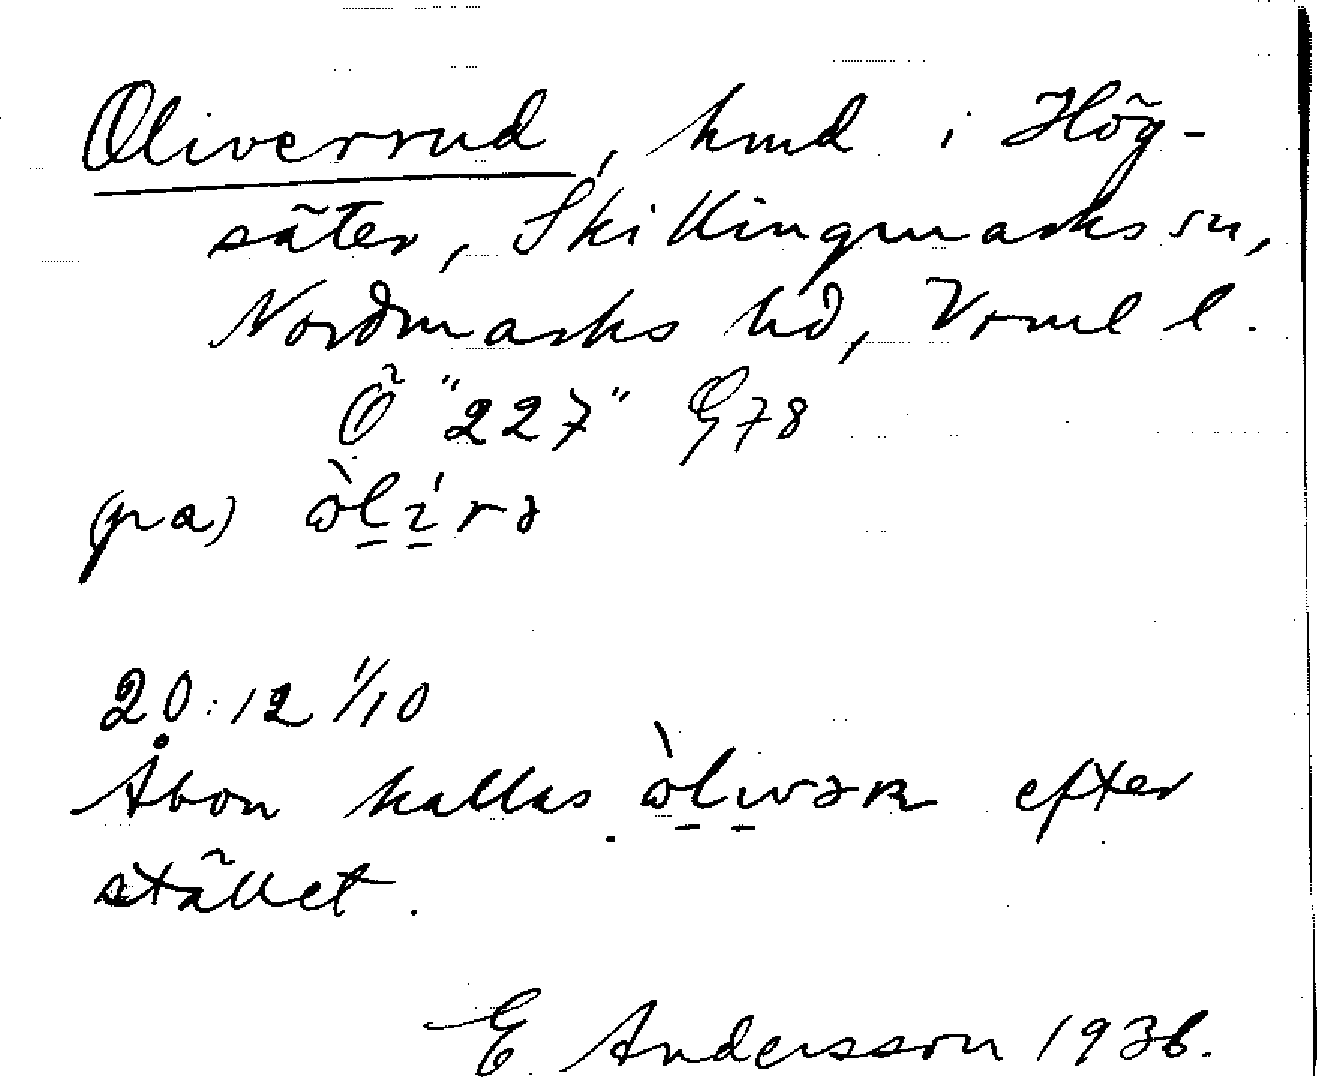 Oliverrud, hmd i Hög-
säter, Skillingmarks sn,
Nordmarks hd, Vrml l.
Ö "227" G78
(på) òl̠ı̠́rə
20:12 1/10
Åbon kallas òl̠ı̠vəʀ efter
stället.
E. Andersson 1936.